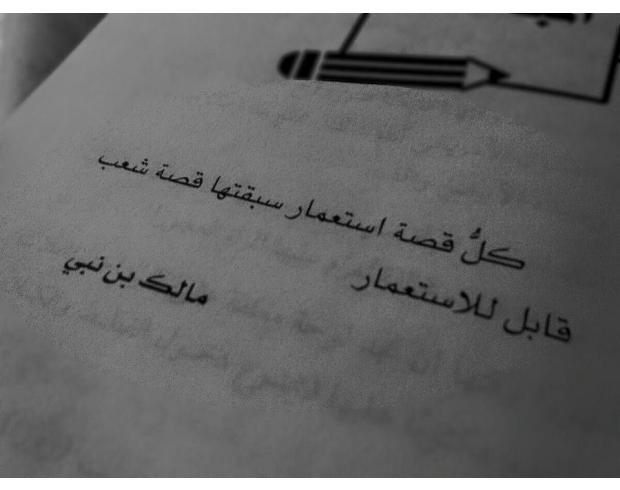 كلُّ قصة استعمار سبقتها قصة شعب
قابل للاستعمار
مالك بن نبي